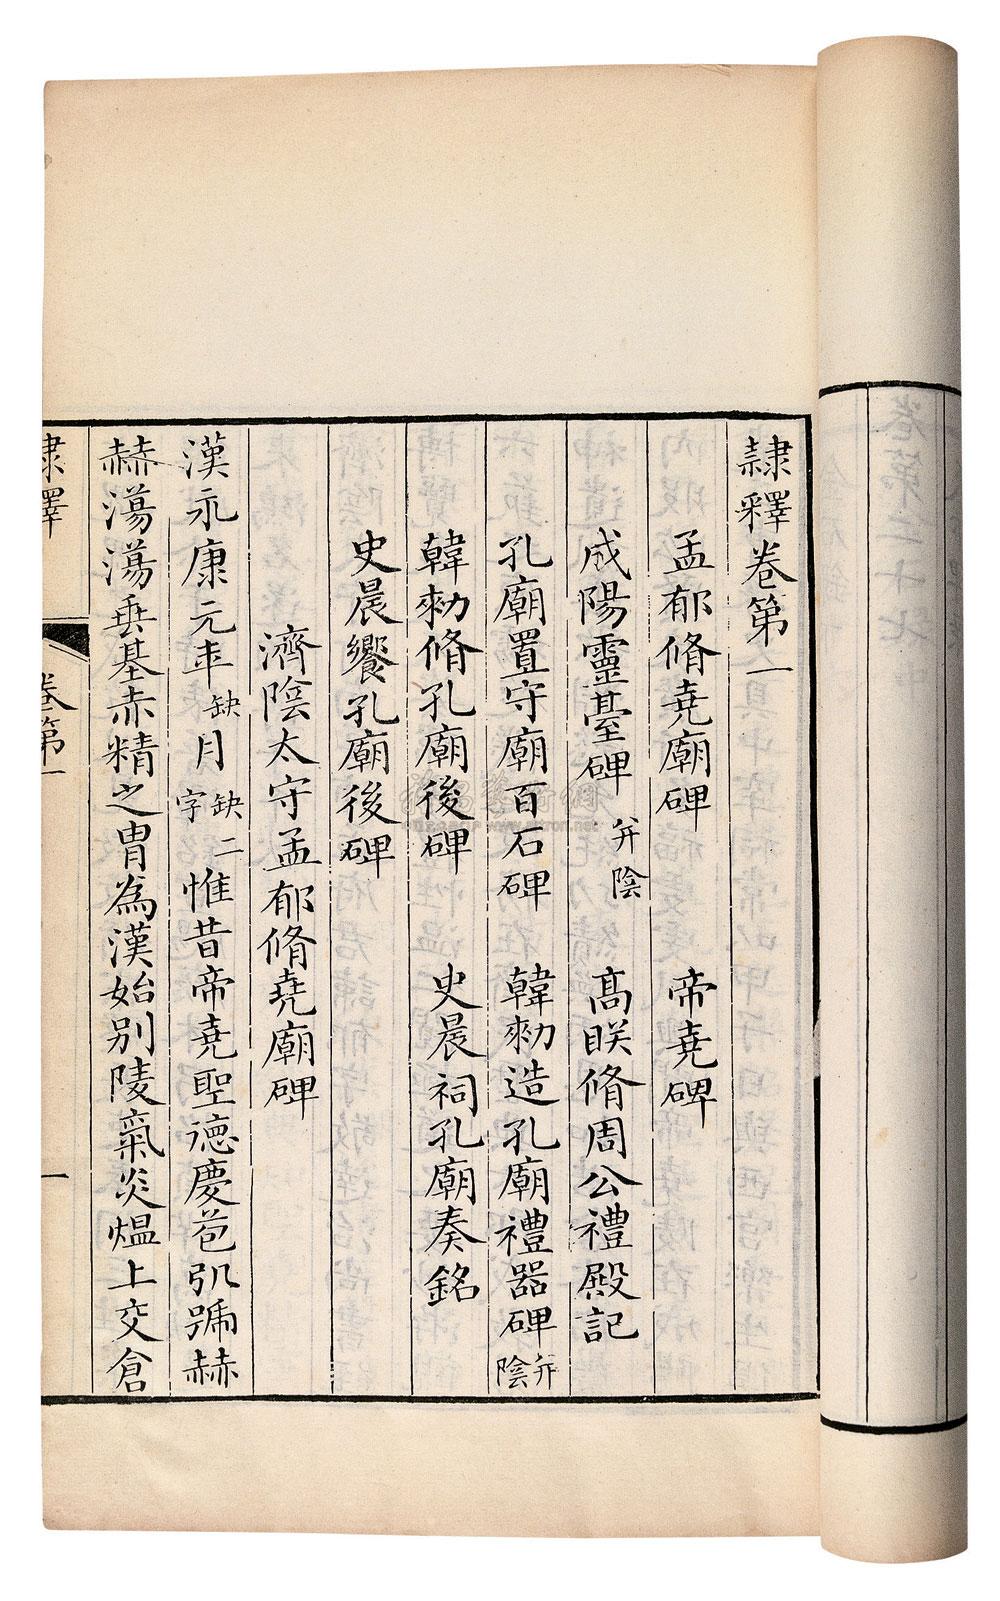 隸釋卷第一
孟郁脩堯廟碑　帝堯碑
成陽靈臺碑 并陰　高眹脩周公禮殿記
孔廟置守廟百石碑　韓勑造孔廟禮器碑 并陰
韓勑脩孔廟後碑　史晨祠孔廟奏銘
史晨饗孔廟後碑
濟陰太守孟郁脩堯廟碑
漢永康元年缺月缺二字惟昔帝堯聖德慶苞弘號赫
赫蕩蕩垂基赤精之胄為漢始别陵氣炎熅上交倉
隸釋　卷第一　一